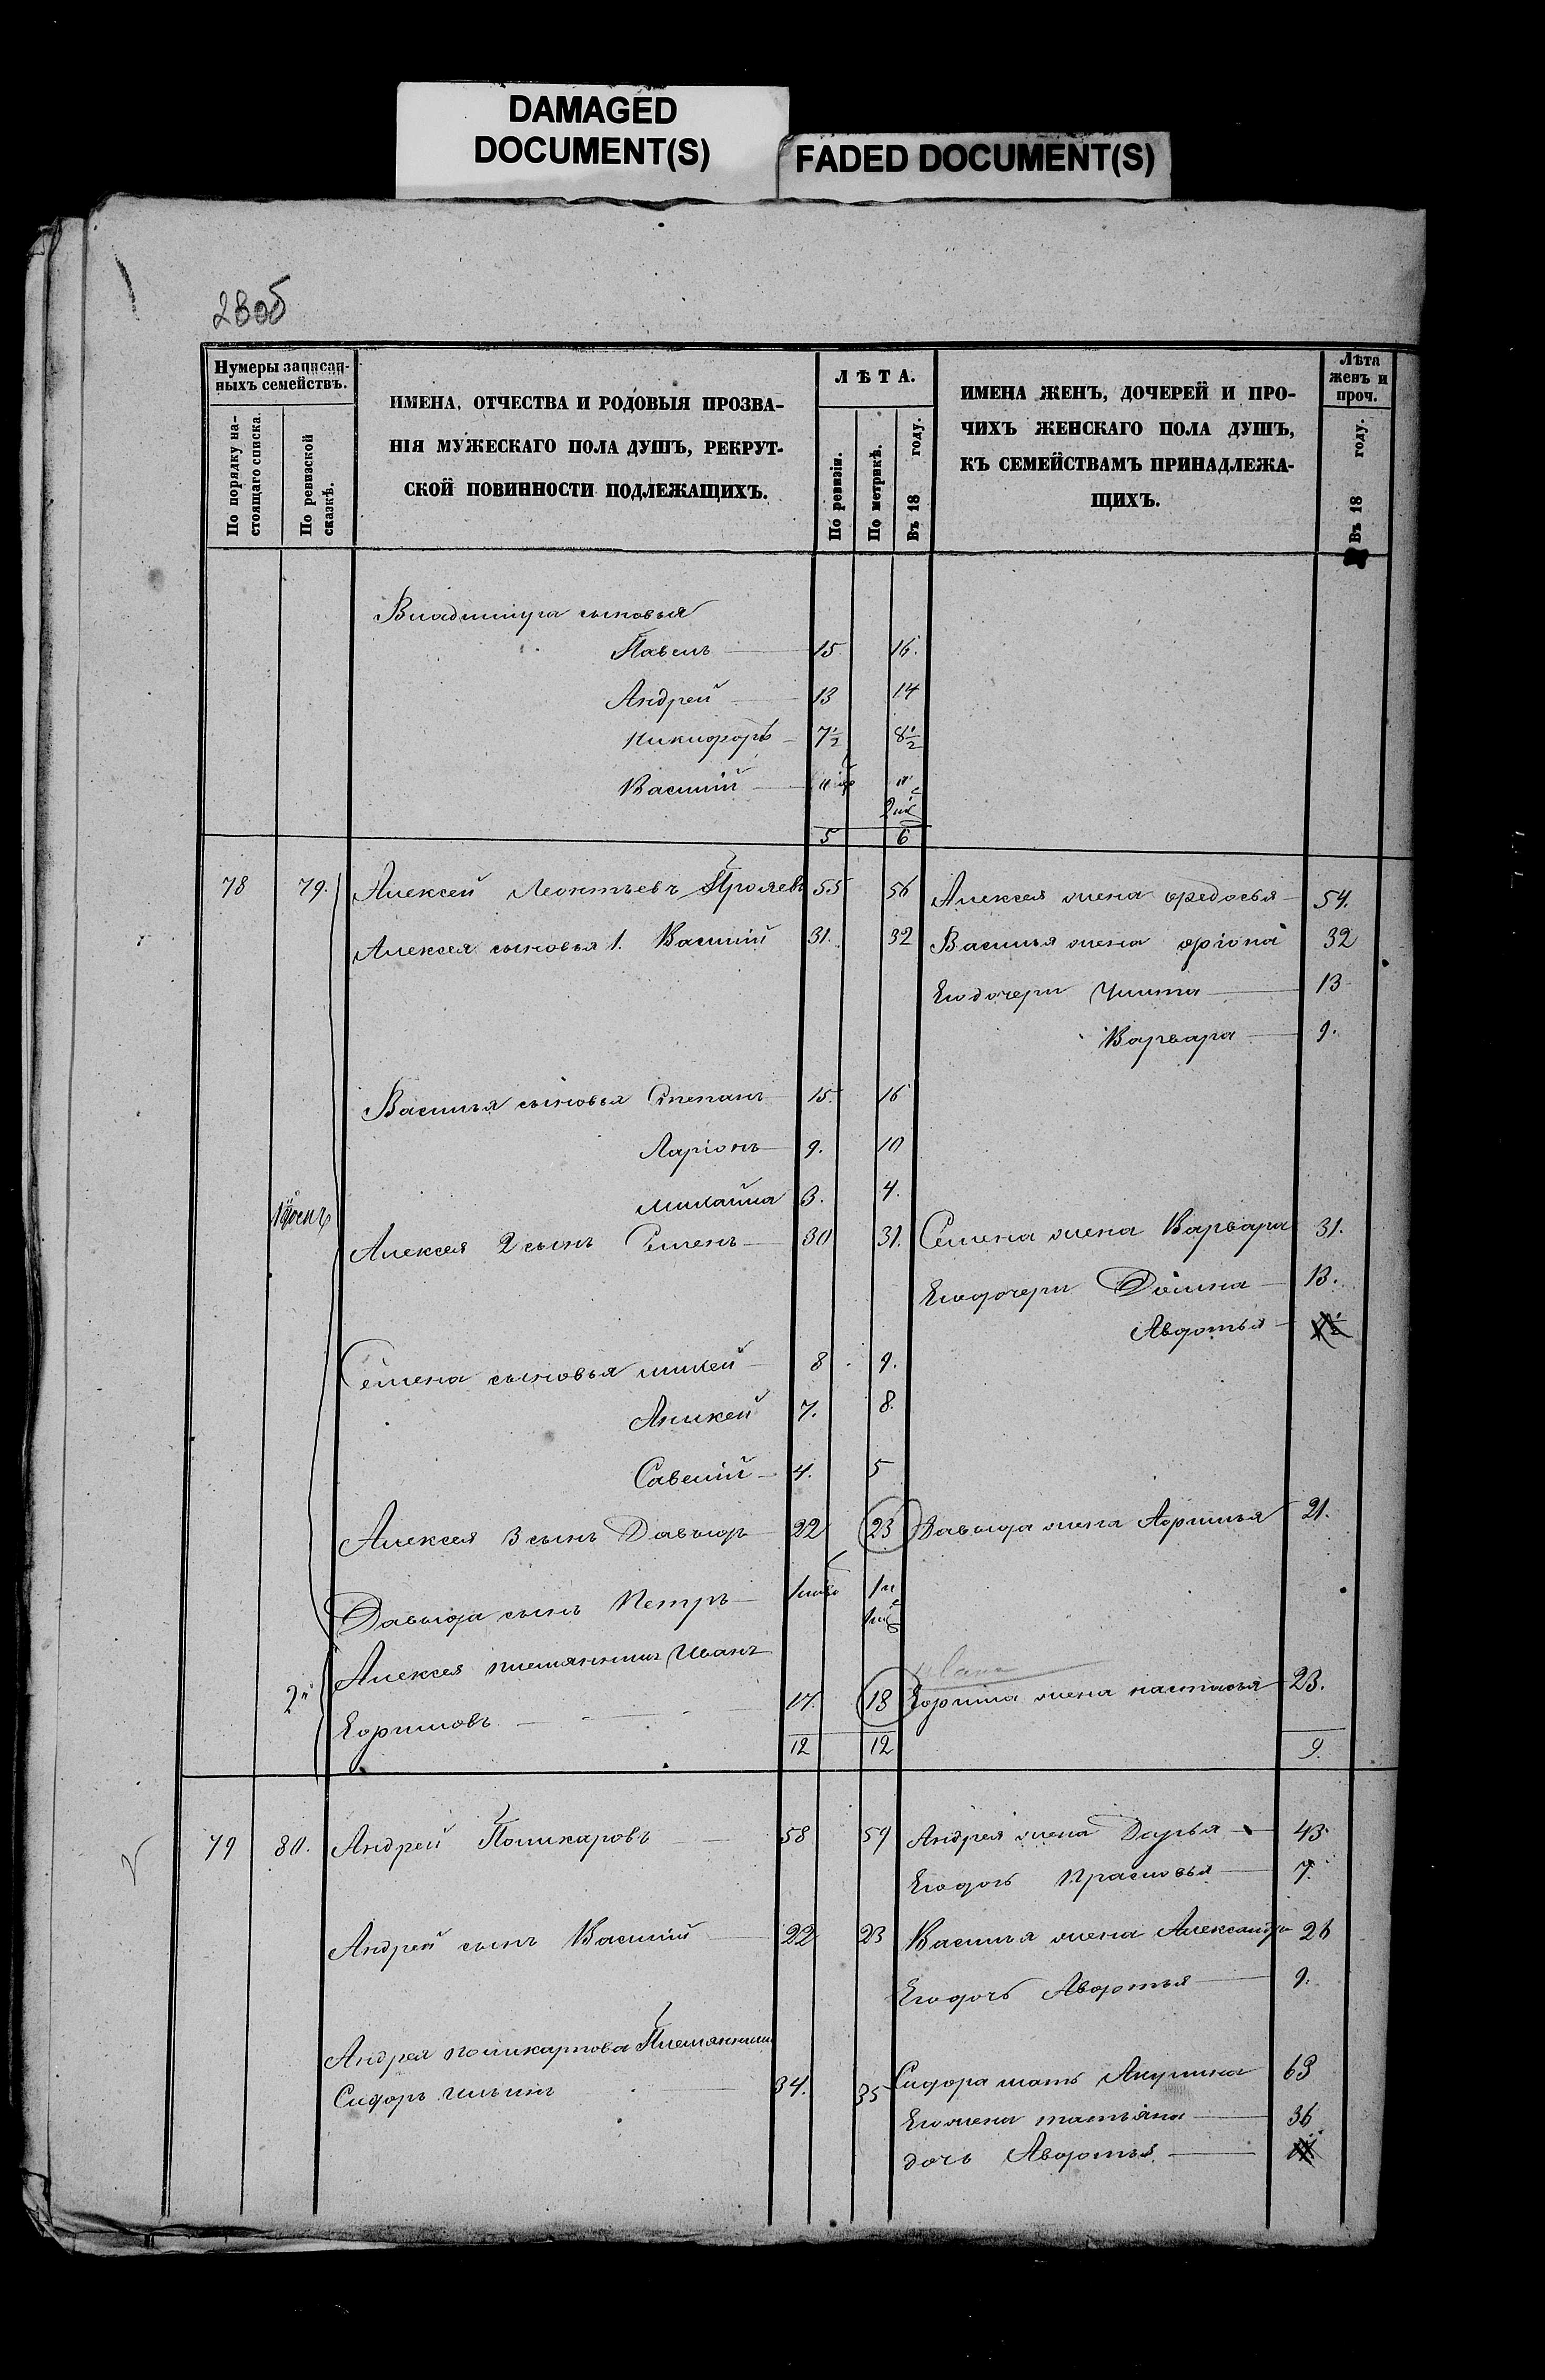 DAMAGED
DOCUMENT(S)
FADED DOCUMENT(S)
28об
Нумеры записан-
ныхъ семействъ.
По порядку на-
стоящаго списка.
По ревизской
сказкѣ.
ИМЕНА, ОТЧЕСТВА И РОДОВЫЯ ПРОЗВА-
НІЯ МУЖЕСКАГО ПОЛА ДУШЪ, РЕКРУТ-
СКОЙ ПОВИННОСТИ ПОДЛЕЖАЩИХЪ.
ЛѢТА.
По ревизіи.
По метрикѣ.
Въ 18 году.
ИМЕНА ЖЕНЪ, ДОЧЕРЕЙ И ПРО-
ЧИХЪ ЖЕНСКАГО ПОЛА ДУШЪ,
КЪ СЕМЕЙСТВАМЪ ПРИНАДЛЕЖА-
ЩИХЪ.
Лѣта
женъ и
проч.
Въ 18 году.
Владиміра сыновья
Павелъ 15 16.
Андрей 13 14
Никифоръ 7½ 8½
Василій
5 6
78 79. Алексей Леонтьевъ 55 56 Алексея жена Федосья 54.
Алексея сыновья 1. Василій 31. 32 Василья жена Фіона 32
Его дочери Улита 13
Варвара 9.
Василья сыновья Степанъ 15. 16
Ларіонъ 9. 10
Михайла 3. 4.
Алексея 2 сынъ Семенъ 30 31. Семена жена Варвара 31.
Его дочери Домна 13.
Авдотья
Семена сыновья Михей 8 9.
Аникей 7. 8.
Савелій 4. 5
Алексея 3 сынъ Давыдъ 22 23 Давыда жена Афимья 21.
Давыда сынъ Петръ
Алексея племянникъ Иванъ
2й Ефимовъ 17. 18 Ефима жена Настасья 23.
12 12 9.
79 80. Андрей Поликаровъ 58 59 Андрея жена Дарья 43.
Его дочь Прасковья 7.
Андрей сынъ Василій 22 23 Василья жена Александра 26
Его дочь Авдотья 9.
Андрея Поликарпова Племянникъ
Сидоръ Ильинъ 34. 35 Сидора мать Акулина 63
Его жена Татьяна 36
дочь Авдотья.